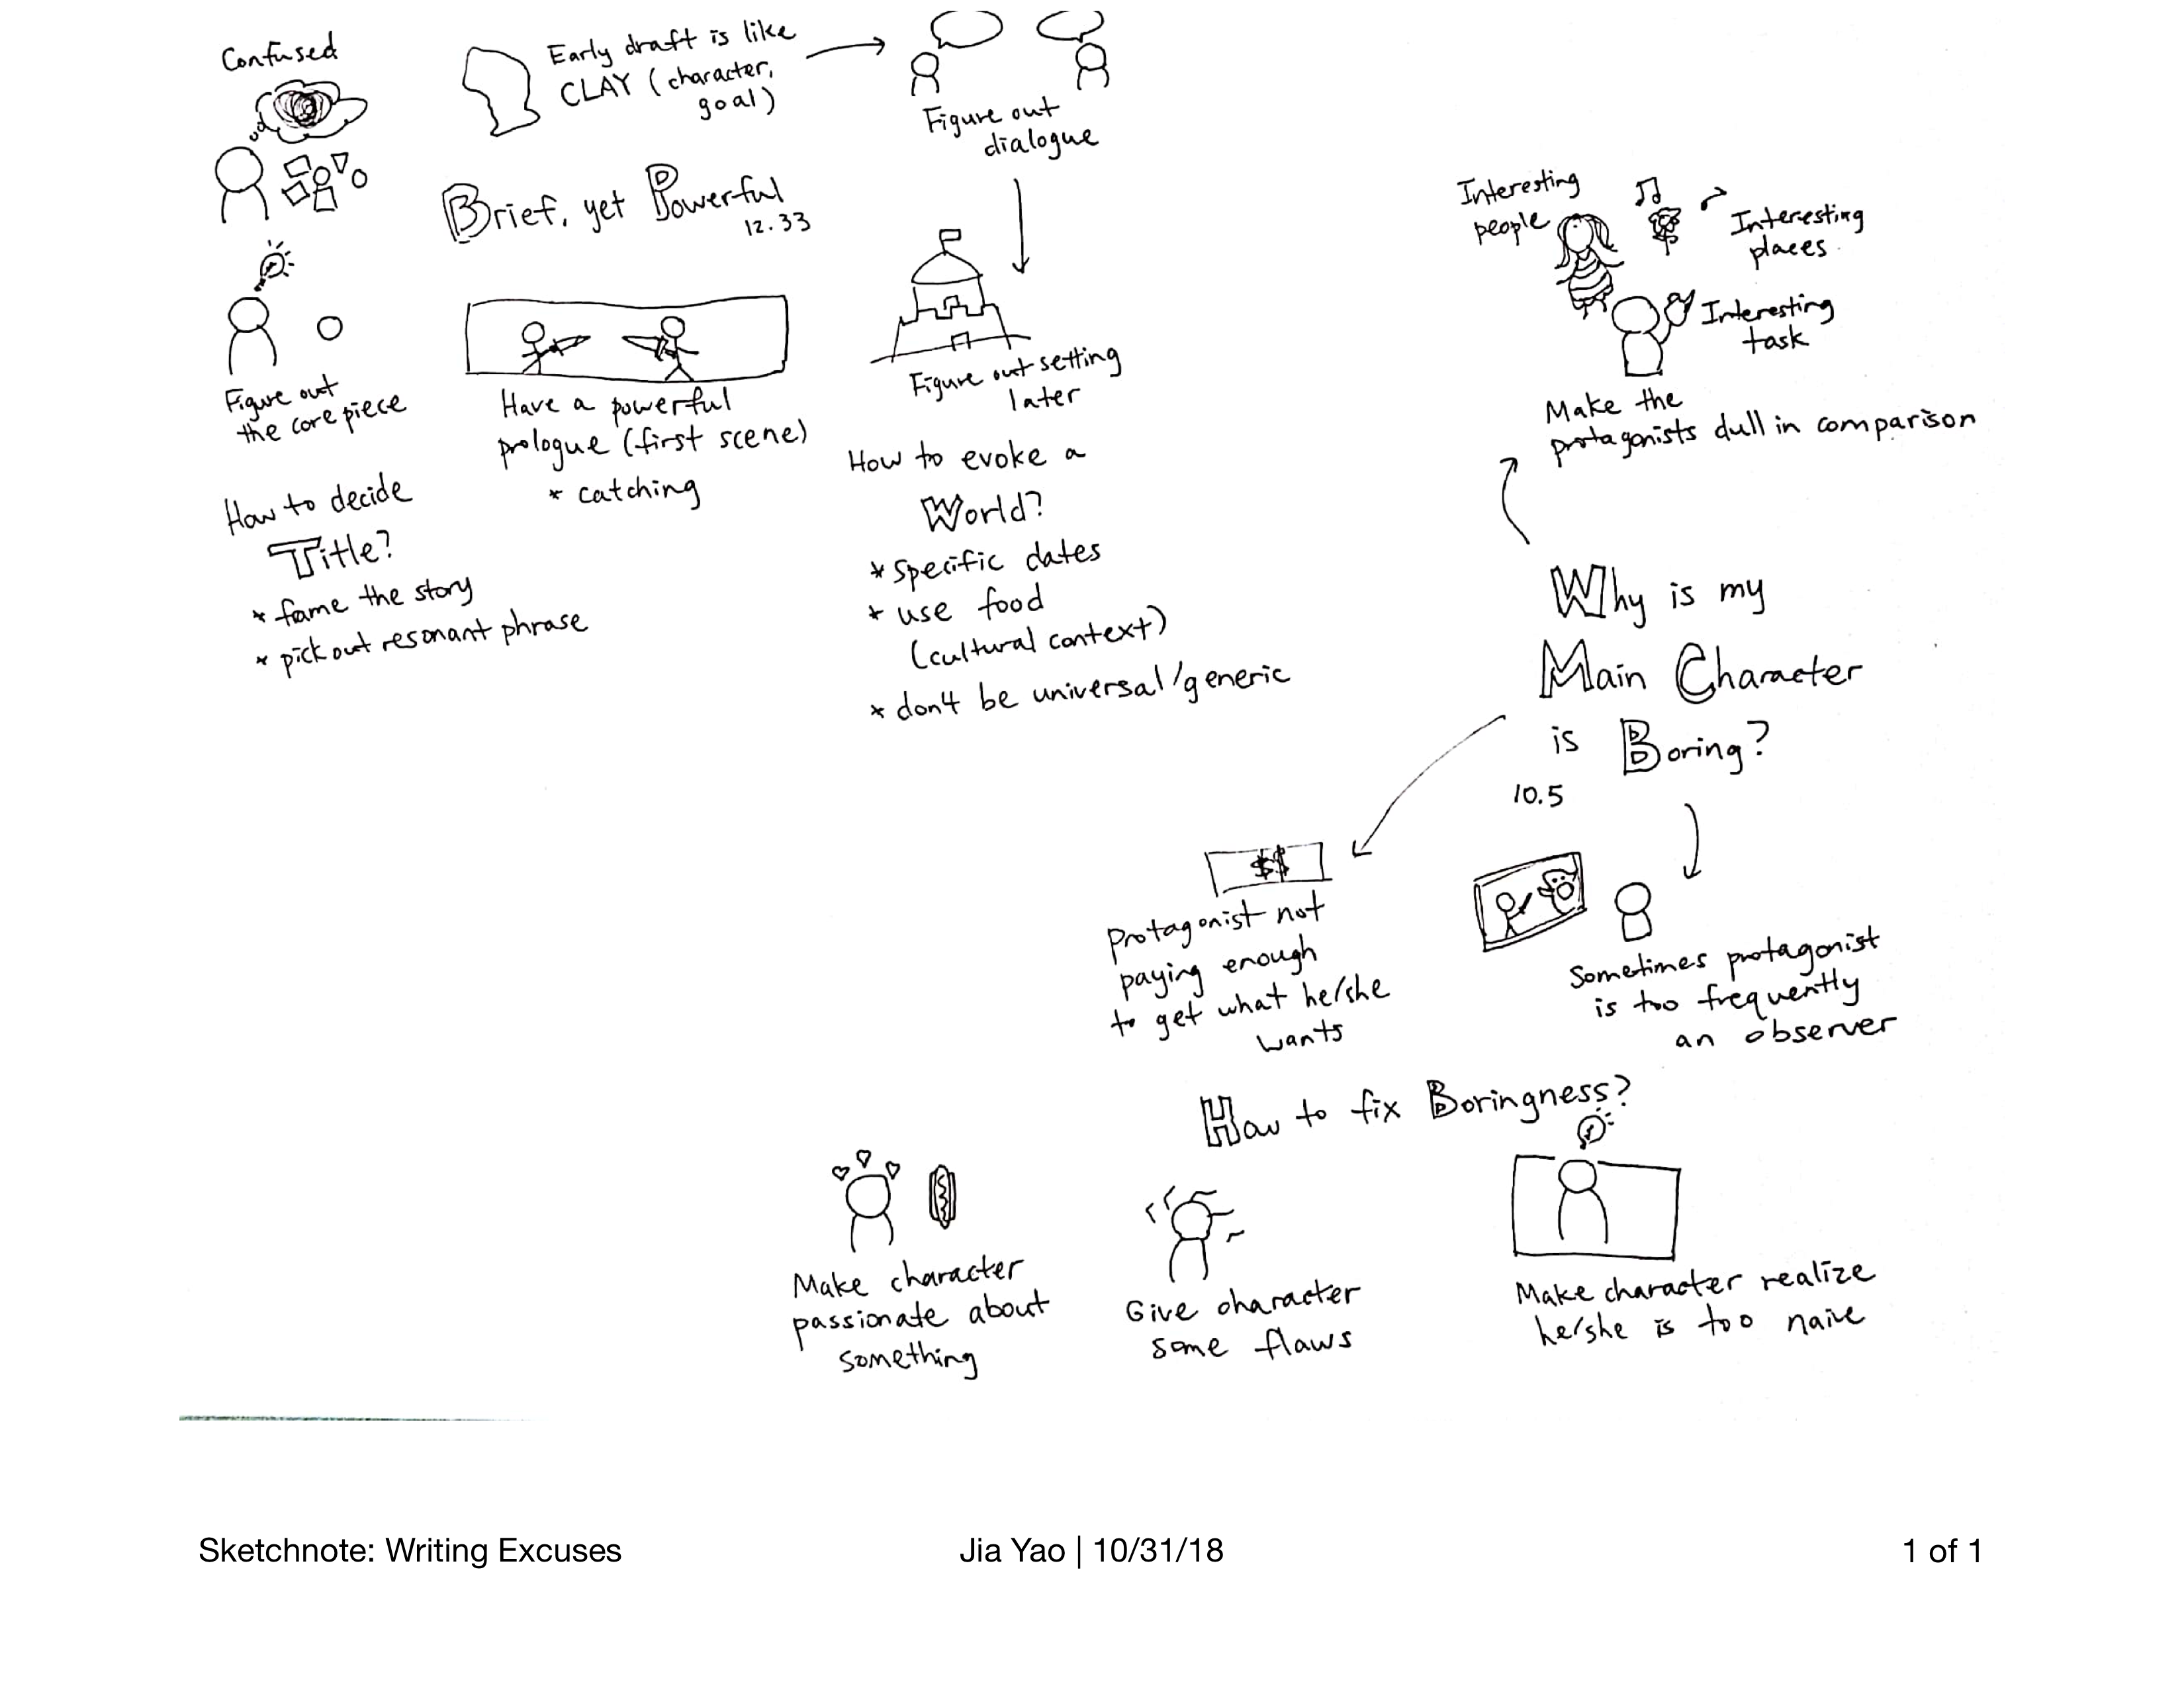 Confused
Early draft is like
CLAY (character,
goal)
Figure out
dialogue
Brief, yet Powerful
12.33
Figure out
the core piece
Have a powerful
prologue (first scene)
* catching
Figure out setting
later
How to decide
Title?
* fame the story
* pick out resonant phrase
How to evoke a
World?
* specific dates
* use food
(cultural context)
* don't be universal/generic
Interesting
people
Interesting
places
Interesting
task
Make the
protagonists dull in comparison
Why is my
Main Character
is Boring?
10.5
$$
Protagonist not
paying enough
to get what he/she
wants
Sometimes protagonist
is too frequently
an observer
How to fix Boringness?
Make character
passionate about
something
Give character
some flaws
Make character realize
he/she is too naive
Sketchnote: Writing Excuses
Jia Yao | 10/31/18
1 of 1